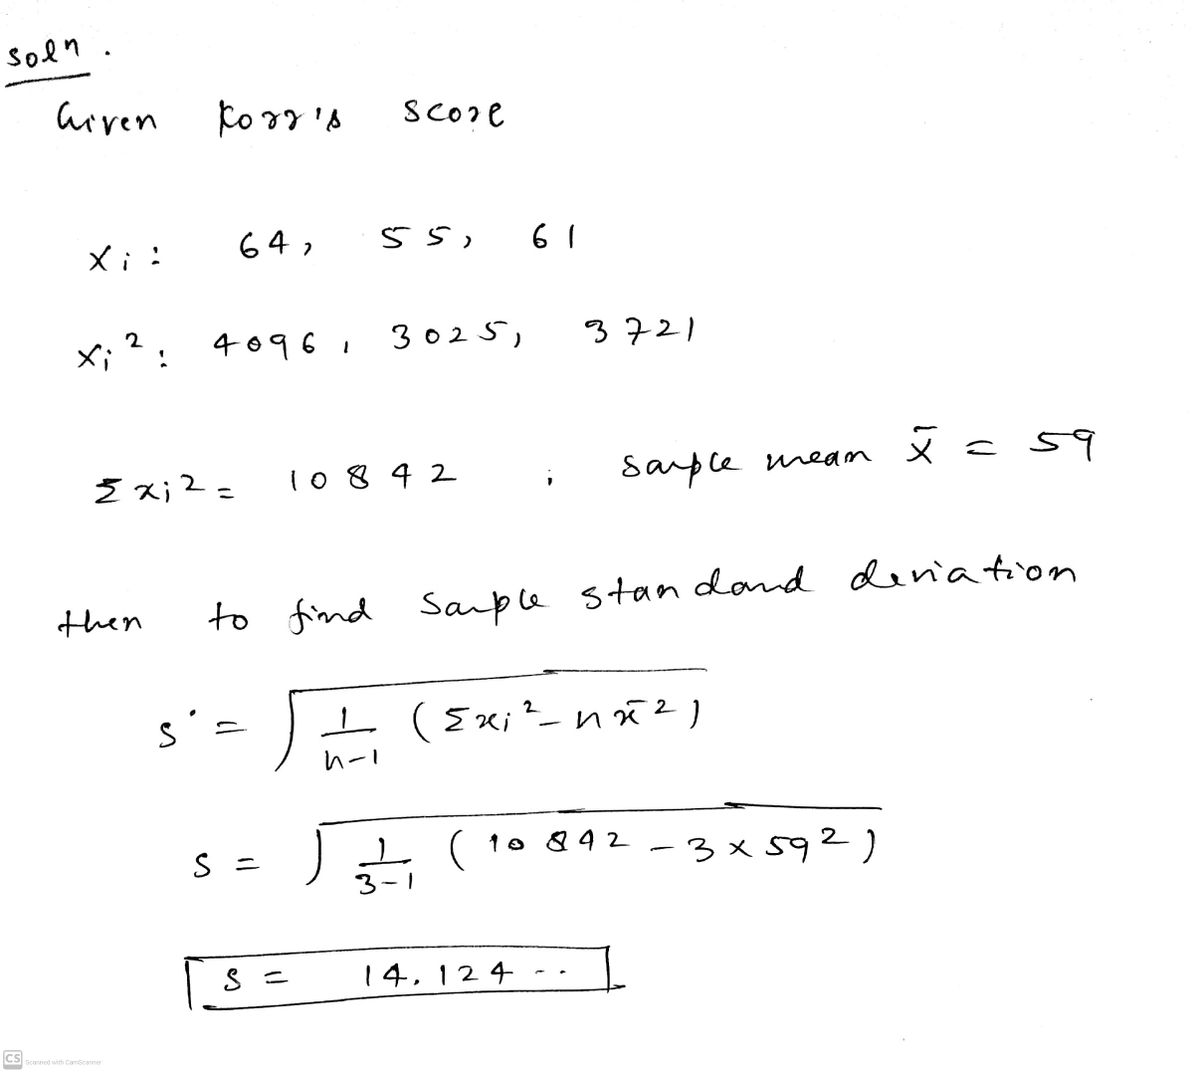 soln.
Given Korr's score
xi: 64, 55, 61
xi²: 4096, 3025, 3721
Σxi² = 10842 ; sample mean x̄ = 59
then to find sample standard deviation
s = √(1/(n-1) (Σxi² - nx̄²))
s = √(1/(3-1) (10842 - 3 × 59²))
s = 14.124 --
CS Scanned with CamScanner